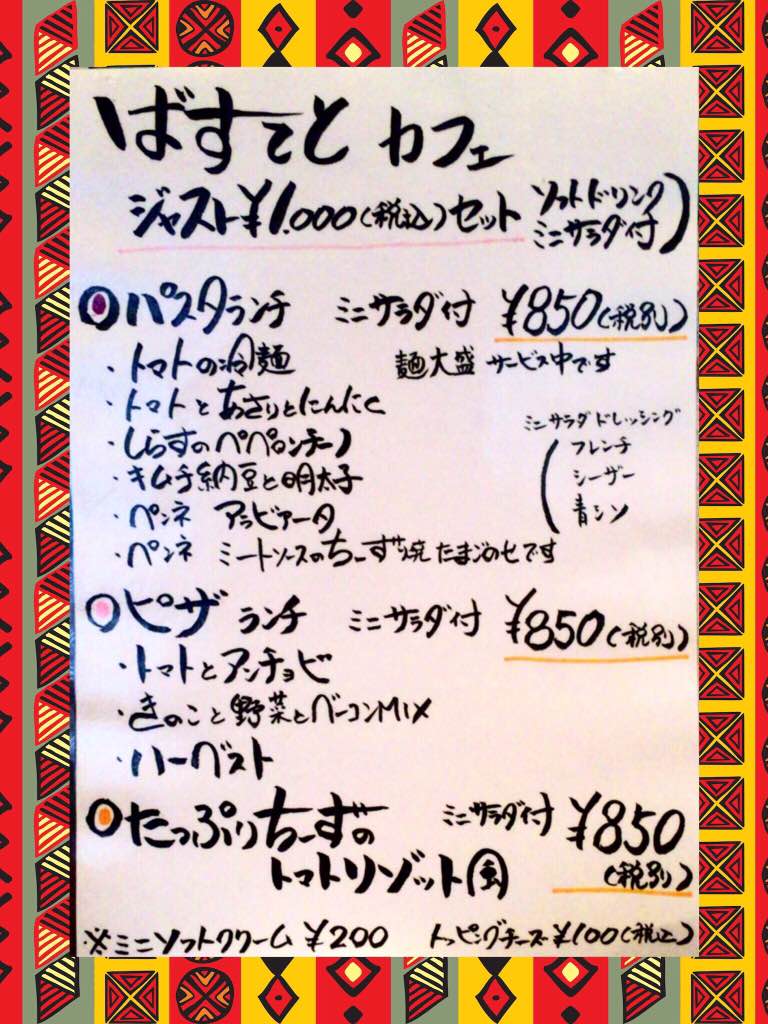 ばすてと カフェ
ジャスト¥1.000(税込)セット ソフトドリンク ミニサラダ付)
パスタランチ ミニサラダ付 ¥850(税別)
・トマトの冷麺 麺大盛 サービス中です
・トマトとあさりとにんにく
・しらすのペペロンチーノ
・キムチ納豆と明太子
・ペンネ アラビアータ
・ペンネ ミートソースのちーず焼たまごのせです
ミニサラダドレッシング
フレンチ
シーザー
青シソ
ピザランチ ミニサラダ付 ¥850(税別)
・トマトとアンチョビ
・きのこと野菜とベーコンMIX
・ハーベスト
たっぷりちーずの ミニサラダ付 ¥850
トマトリゾット風 (税別)
※ミニソフトクリーム ¥200 トッピングチーズ¥100(税込)